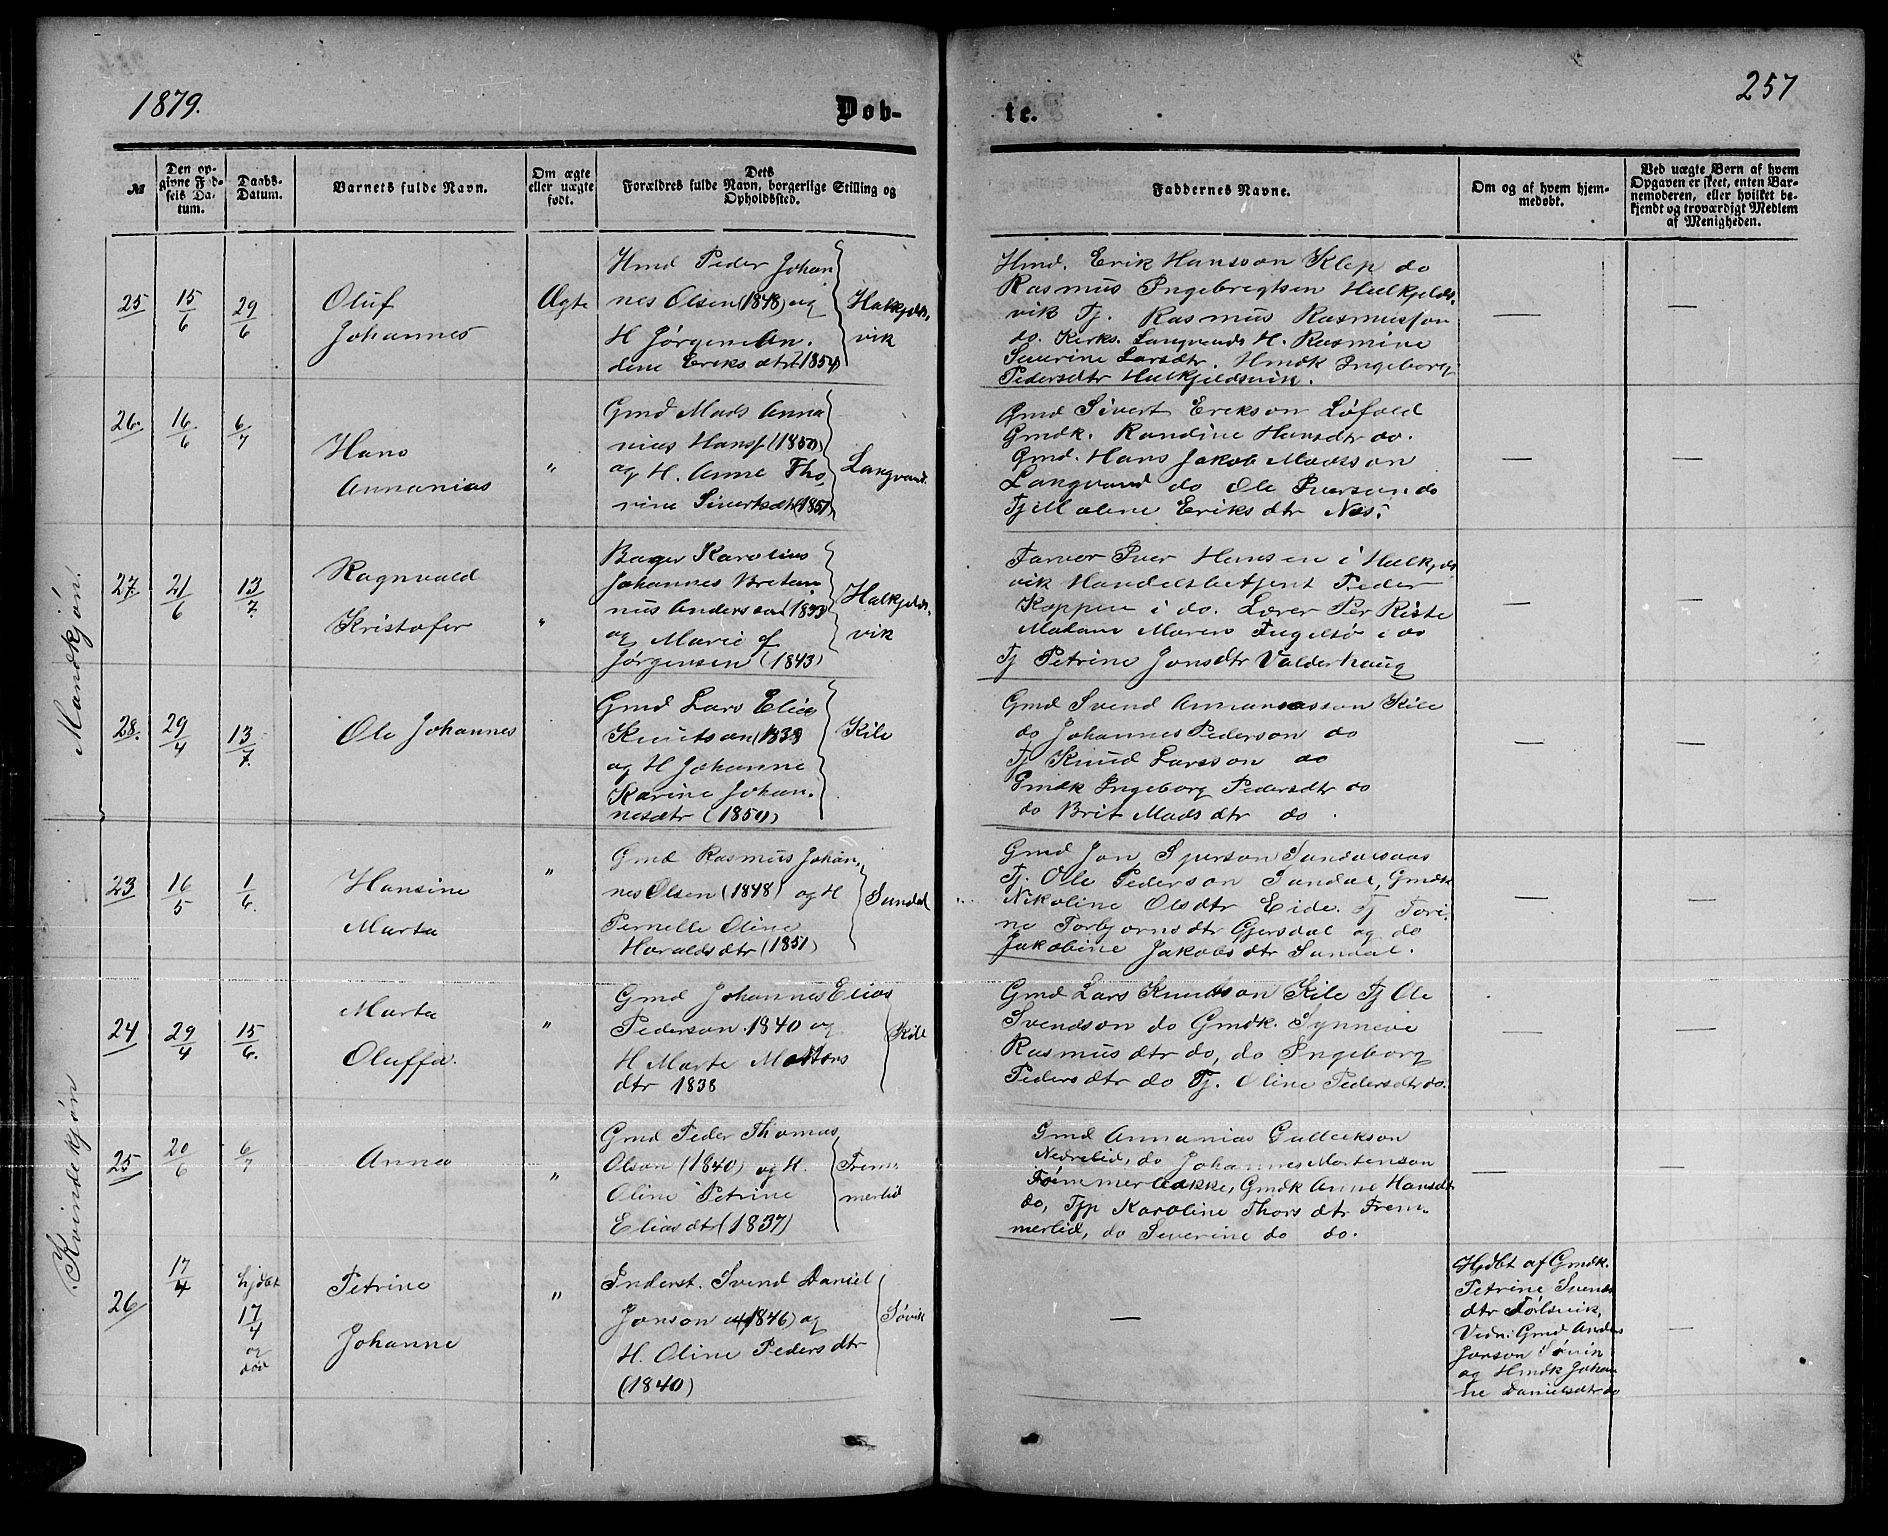 1879.
Døb-
te.
257
№
Den op-
givne Fød-
sels Da-
tum.
Daabs-
Datum.
Barnets fulde Navn.
Om ægte
eller uægte
født.
Dets
Forældres fulde Navn, borgerlige Stilling og
Opholdssted.
Faddernes Navne.
Om og af hvem hjem-
medøbt.
Ved uægte Børn af hvem
Opgaven er skeet, enten Bar-
nemoderen, eller hvilket be-
kjendt og troværdigt Medlem
af Menigheden.
Mandkjøn!
25
15/6
29/6
Oluf
Johannes
Ægte
Hmd Peder Johan
nes Olsen (1848) og
H Jørgine An.
dine Eriksdtr 1854)
Halkjelds.
vik
Hmd. Erik Hansson Klep do
Rasmus Ingebregtsen Hulkjelds.
vik Tj. Rasmus Rasmusson
do. Kirks. Langvands H. Rasmine
Severine Larsdtr. Hmdk Ingeborg
Pedersdtr Hulkjeldsvik.
—
—
26.
16/6
6/7
Hans
Annanias
"
Gmd Mads Anna
nias Hansf (1850)
og H. Anne Tho,
rine Sivertsdtr (1851)
Langvand.
Gmd Sivert Erikson Løfold
Gmdk. Randine Hansdtr do.
Gmd. Hans Jakob Madsson
Langvand do Ole Iverson do
Tj Malene Eriksdtr Nes.
—
—
27.
21/6
13/7.
Ragnvald
Kristofer
"
Bager Karolius
Johannes Bretan
nus Anderson (1843
og Marie f
Jørgensen (1843)
Halkjelds.
vik
Farver Iver Hansen i Hulkjelds
vik Handelsbetjent Peder
Koppen i do. Lærer Per Riste
Madam Maren Fugelsø i do
Tj Petrine Jonsdtr Valderhaug
—
—
28.
29/4
13/7.
Ole Johannes
Gmd Lars Elias
Knutson (1838
og H Johanne
Karine Johan.
nesdtr (1850)
Kile
Gmd Svend Annaniasson Kile
do Johannes Pederson do
Tj Knud Larsson do
Gmdk Ingeborg Pedersdtr do
do Brit Madsdtr do.
—
—
Kvindekjøn
23
16/5
1/6.
Hansine
Marta
"
Gmd Rasmus Johan,
nes Olsen (1848) og H
Pernelle Oline
Haraldsdtr (1851)
Sundal
Gmd Jon Iverson Sundarsaas
Tj. Ole Pederson Sundal, Gmdk
Nikoline Olsdtr Eide. Tj Tori-
ne Torbjørnsdtr Gjersdal og do
Jakobine Jakobsdtr Sundal.
—
—
24
29/4
15/6.
Marta
Oluffa.
"
Gmd Johannes Elias
Pederson 1840 og
H Marte Mattans
dtr 1838
Kile
Gmd Lars Knutson Kile Tj Ole
Svendson do Gmdk. Synneve
Rasmusdtr do, do Ingeborg
Pedersdtr do Tj. Oline Pedersdtr do.
—
—
25
20/6
6/7
Anna
"
Gmd Peder Thomas
Olson (1840) og H.
Oline Petrine
Eliasdtr (1837)
Frem.
merlid
Gmd Annanias Gulleikson
Nedrelid, do Johannes Mortenson
Tømmerbakke, Gmdk Anne Hansdtr
do, Tjp Karoline Thorsdtr Frem-
merlid, do Severine do do.
—
—
26
17/4
hjdbt
17/4
og
død
Petrine
Johanne
"
Inderst. Svend Daniel
Jonson (1846) og
H. Oline Pedersdtr
(1840)
Søvik
—
Hjdbt af Gmdk.
Petrine Svends
dtr
Vidn: Gmd Anders
Jonson Søvik
og Hmdk Johan
ne Danielsdtr do
—